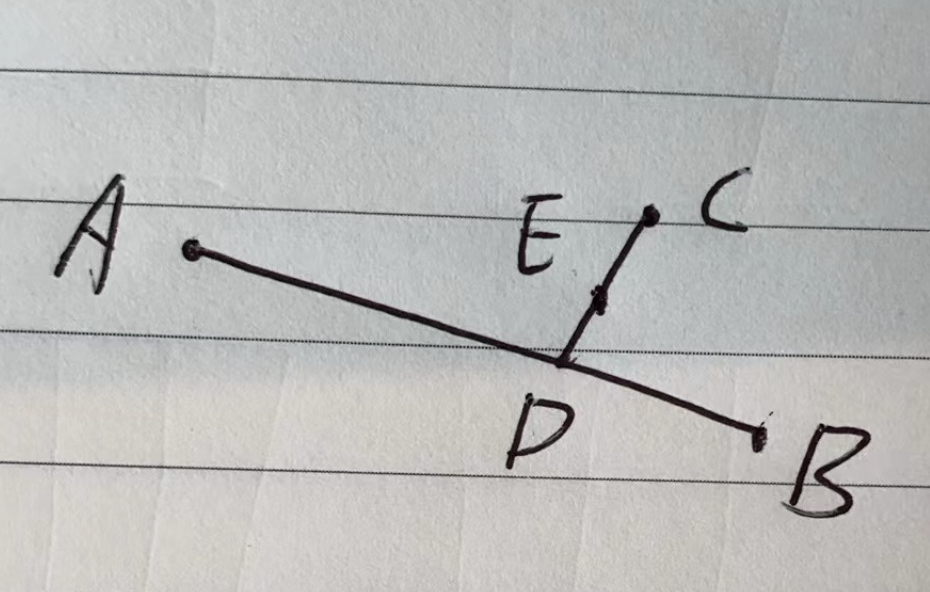 A
E
C
D
B